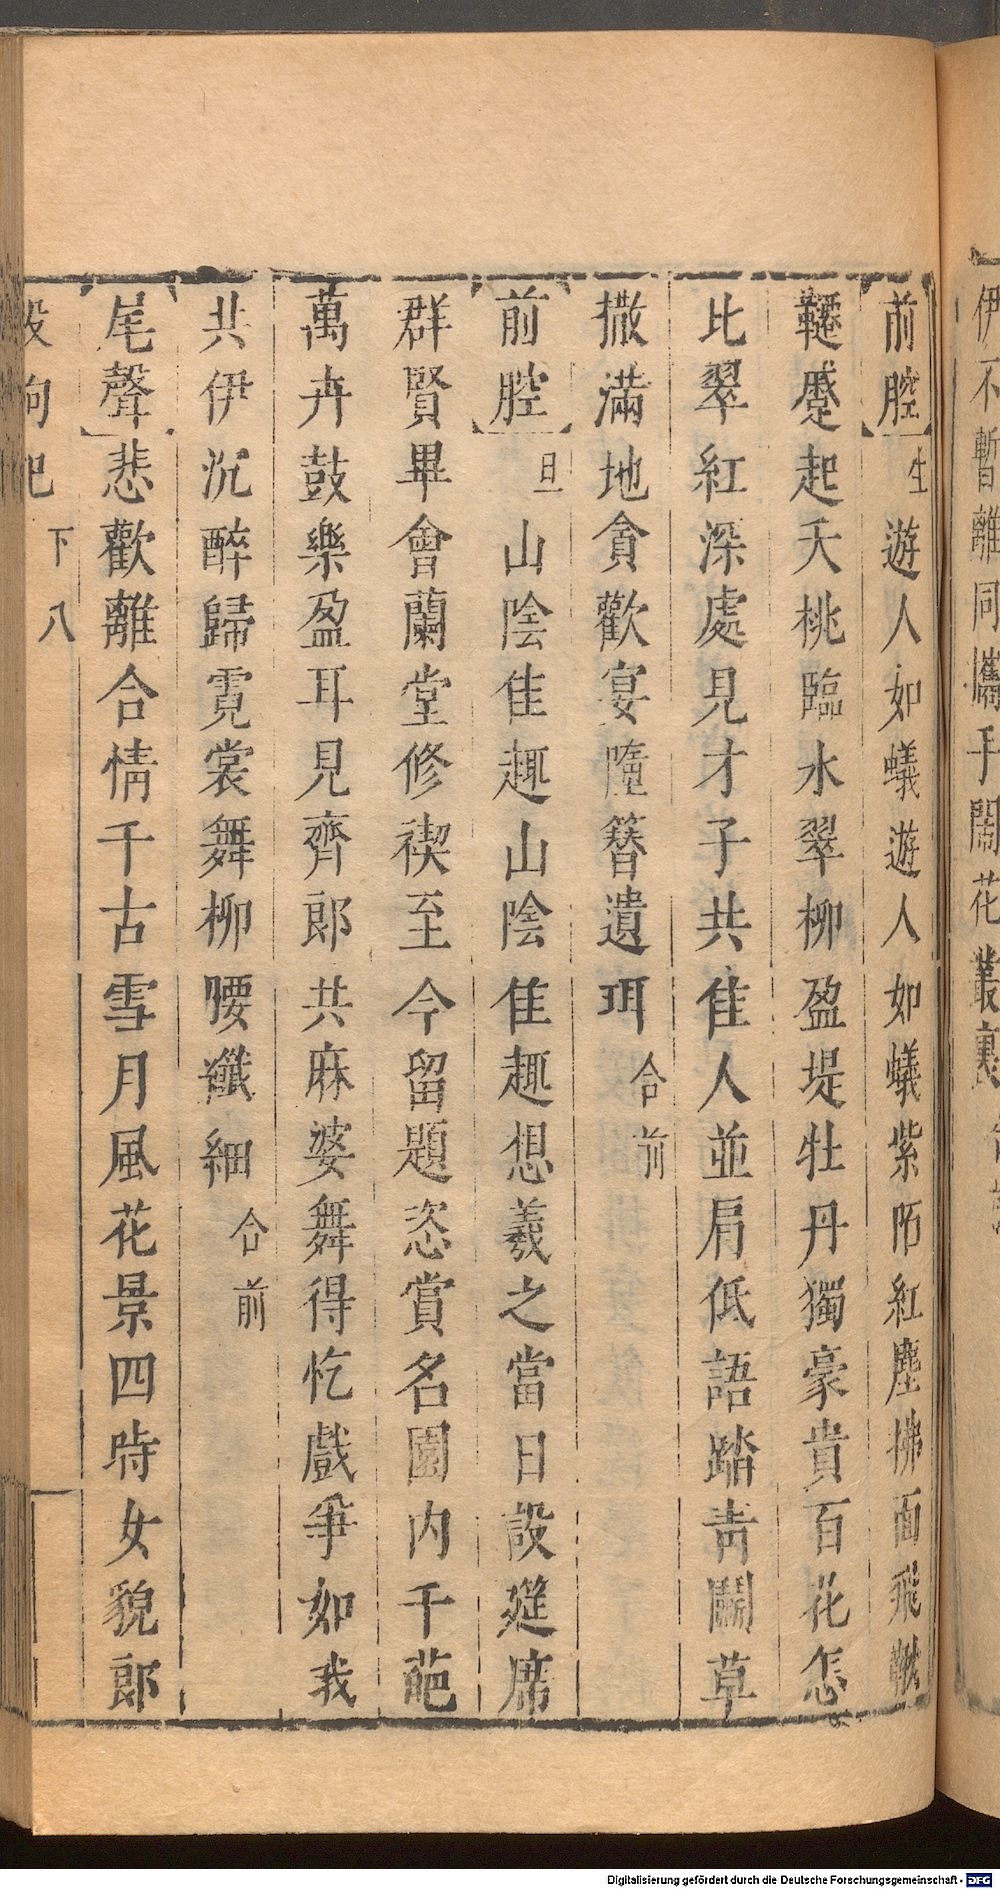 伊不暫離同攜手鬧花叢裏
前腔生遊人如蟻遊人如蟻紫陌紅塵拂面飛鞦
韆蹙起夭桃臨水翠柳盈堤牡丹獨豪貴百花怎
比翠紅深處見才子共佳人並肩低語踏青鬭草
撒滿地貪歡宴墮簪遺珥合前
前腔旦山陰佳趣山陰佳趣想羲之當日設筵席
群賢畢會蘭堂修禊至今留題恣賞名園內千葩
萬卉鼓樂盈耳見齊郎共麻婆舞得忔戲爭如我
共伊沉醉歸霓裳舞柳腰纖細合前
尾聲悲歡離合情千古雪月風花景四時女貌郎
下八
Digitalisierung gefördert durch die Deutsche Forschungsgemeinschaft - DFG